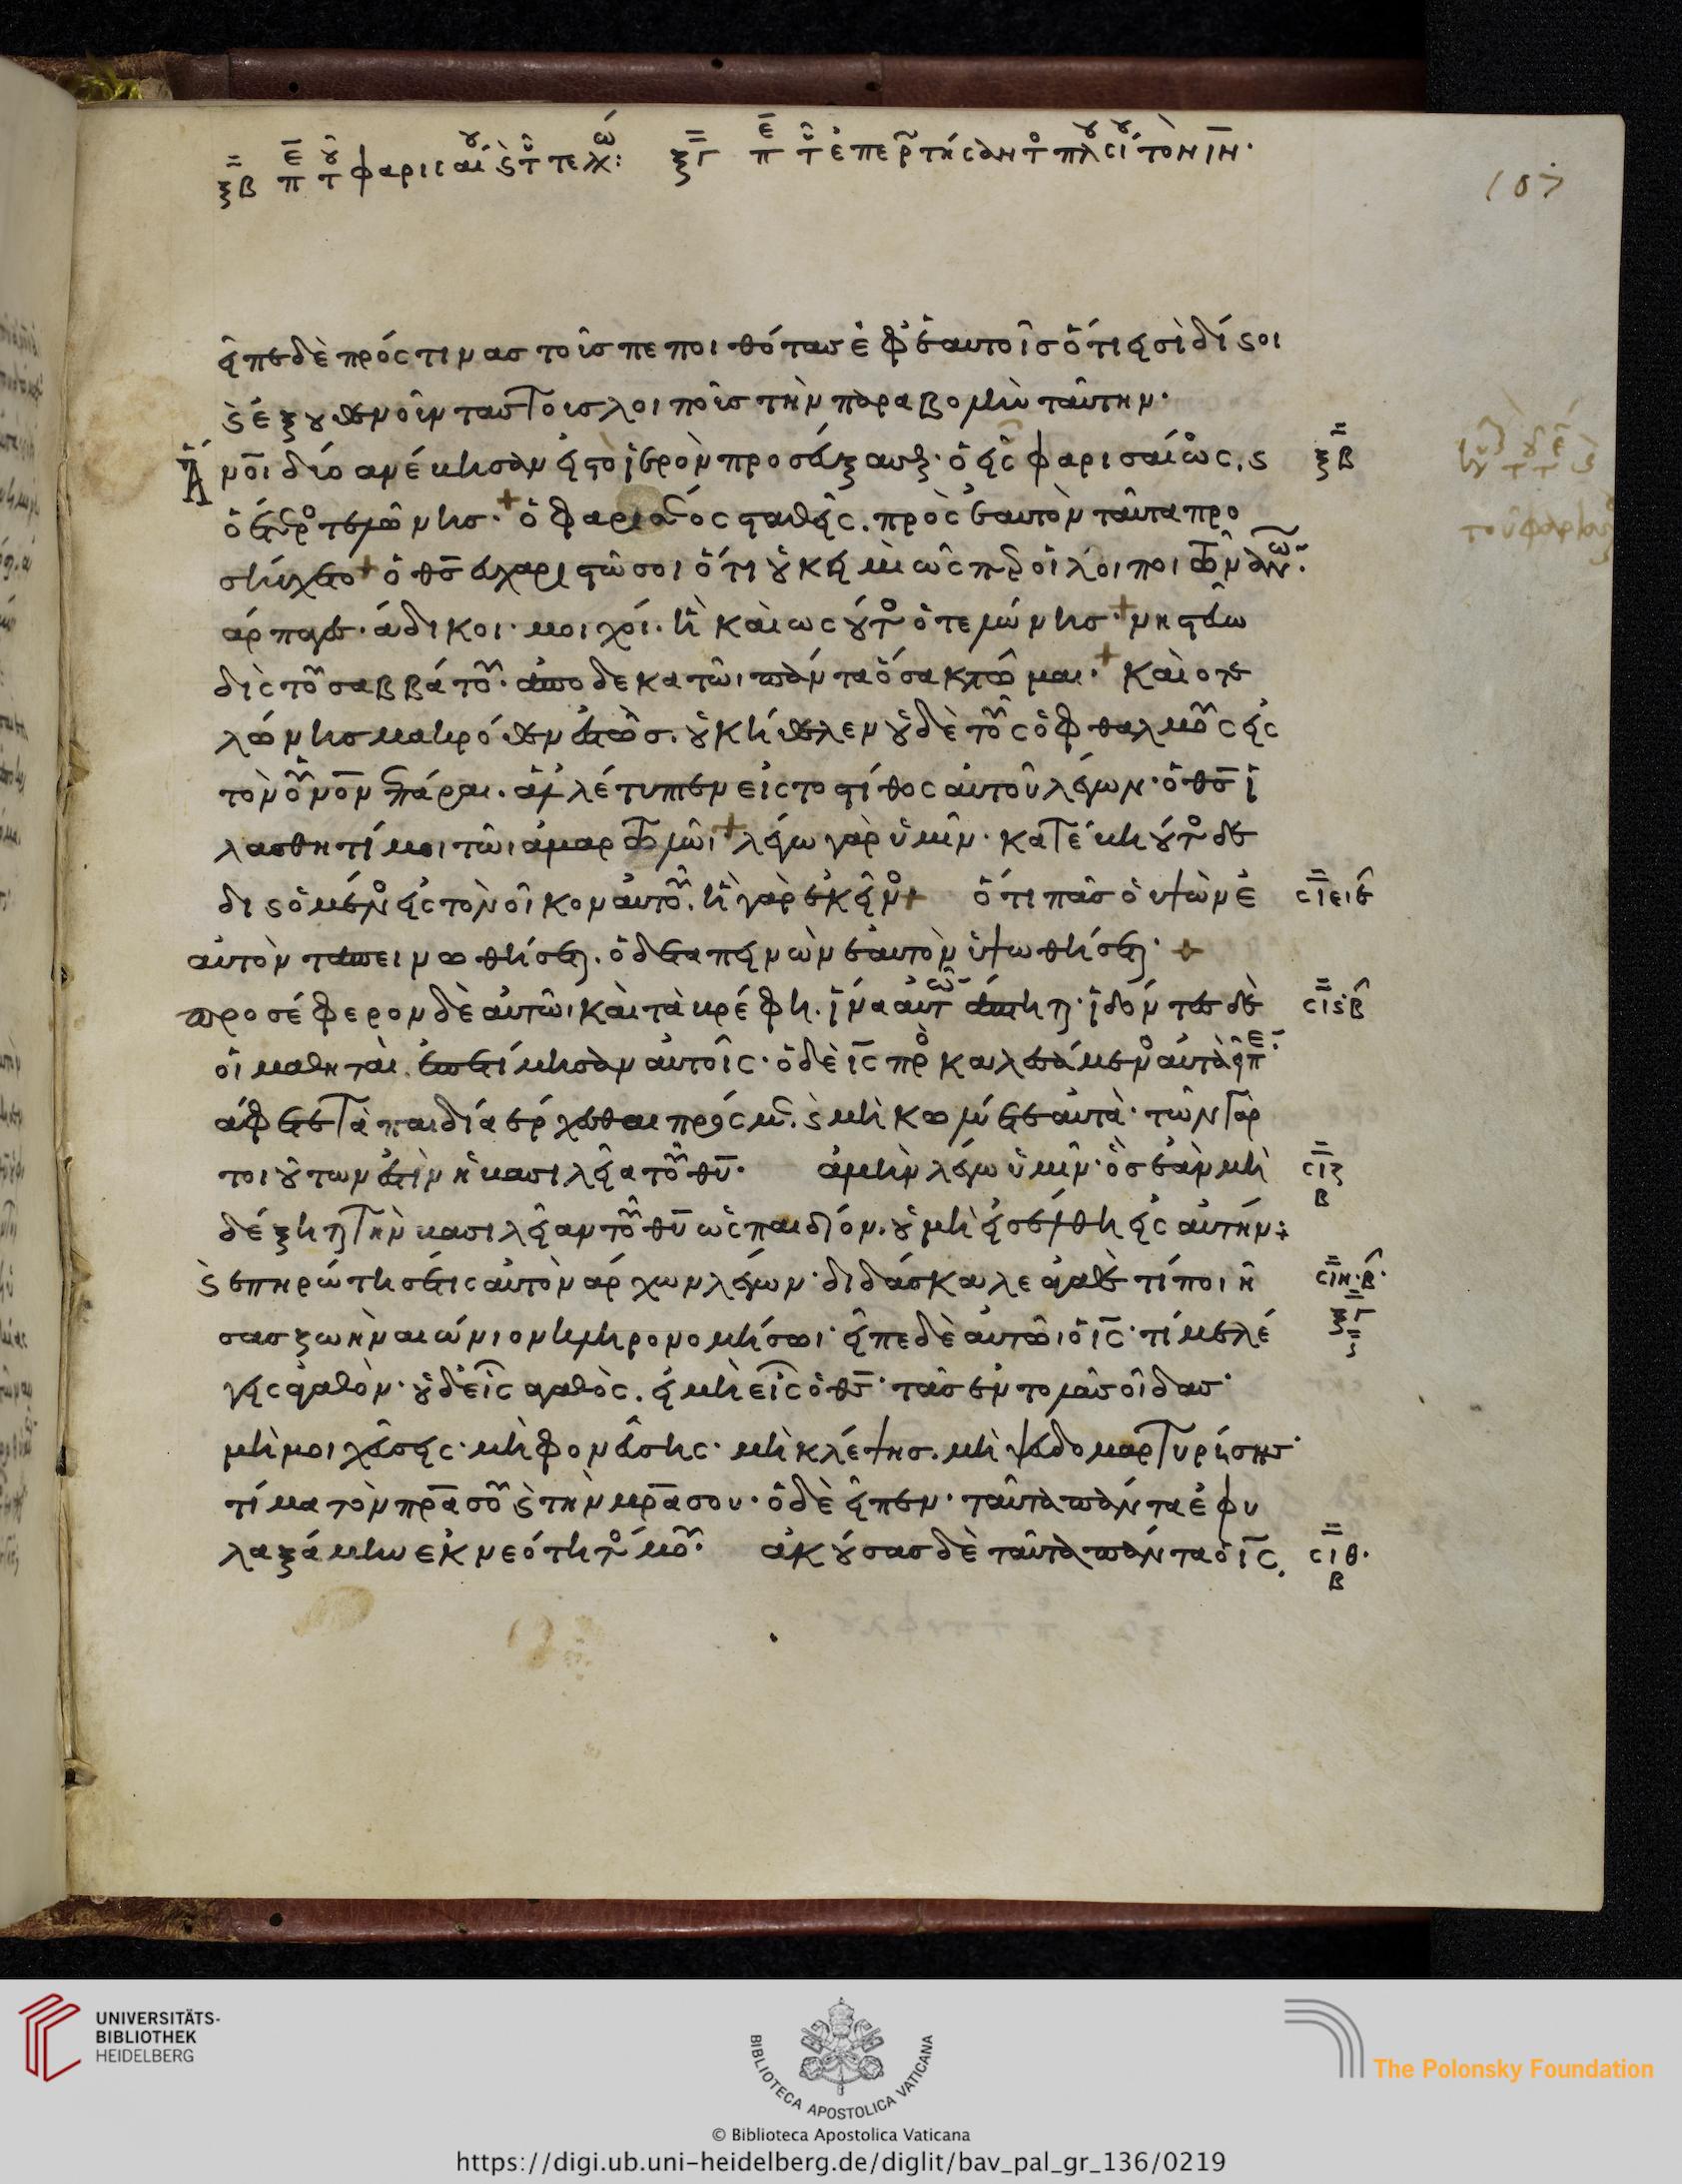 ξβ πε του φαρισαίου ϛ τοῦ τελώ: ξγ πε τοῦ ἐπερτήσαντο πλσίου τὸν ιν·
107
εἶπεδὲ πρός τινας τοῖς πεποιθότας ἐφ ἑαυτοῖς ὅτι εἰσὶ δίϛοι
ϛ ἐξουθενοῦντας τοὺς λοιποῖς τὴν παραβολὴν ταύτην·
Ἄνοι δύο ἀνέβησαν εἰς τὸ ἱερὸν προσεύξασθ· ὁ εἷς φαρισαίος, ϛ
ξβ
ὁ ἕτερος τελώνης. ὁ φαρισαῖος σταθεὶς. πρὸς ἑαυτὸν ταῦτα προ
σηύχετο ὁ θς εὐχαριστῶ σοι ὅτι οὐκ εἰμὶ ὡς περ οἱ λοιποι τῶν ανων·
ἅρπαγες· ἄδικοι· μοιχοί. ἢ καὶ ὡς οὗτος ὁ τελώνης· νηστεύω
δὶς τοῦ σαββάτου· ἀποδεκατῶ πάντα ὅσα κτῶμαι· καὶ ὁ τε
λώνης μακρόθεν ἑστὼς. οὐκ ἤθελεν οὐδὲ τοὺς ὀφθαλμοὺς εἰς
τὸν οὐνον ἐπάραι. ἀλλ ἔτυπτεν εἰς το στίθος αὐτοῦ λέγων· ὁ θς ἱ
λασθητί μοι τῶ ἁμαρτωλῶ λέγω γὰρ ὑμῖν· κατέβη οὗτος δε
διϛομένος εἰς τὸν οἶκον αὐτοῦ. ἢ γὰρ ἐκεῖνος ὅτι πᾶς ὁ ὑψῶν ἑ
σιε ιε
αυτὸν ταπεινωθήσεται. ὁ δε ταπεινῶν ἑαυτὸν ὑψωθήσεται·
προσέφερον δὲ αὐτῶ καὶ τὰ βρέφη. ἵνα αὐτῶν ἅπτηται· ἰδόντες δὲ
σιϛ β
οἱ μαθηταὶ. ἐπετίμησαν αὐτοῖς· ὁ δὲ ις προσκαλεσάμενος αὐτὰ εἶπε·
ἄφετε τὰ παιδία ἔρχεσθαι πρός με. ϛ μὴ κωλύετε αὐτὰ· τῶν γὰρ
τοιούτων ἐστὶν ἡ βασιλεία τοῦ θυ· ἀμὴν λέγω ὑμῖν· ὃς ἐὰν μὴ
σιζ
β
δέξηται τὴν βασιλείαν τοῦ θυ ὡς παιδίον. οὐ μὴ εἰσέλθη εἰς αὐτήν:
ϛ ἐπηρώτησέ τις αὐτὸν ἄρχων λέγων· διδάσκαλε ἀγαθὲ τί ποιή
σιη· β·
σας ζωὴν αἰώνιον κληρονομήσω· εἶπε δὲ αὐτῶ ὁ ις· τί με λέ
ξγ
γεις ἀγαθὸν· οὐδεὶς ἀγαθὸς. εἰ μὴ εἷς ὁ θς· τὰς ἐντολὰς οἶδας·
μὴ μοιχεύσεις· μὴ φονεύσης· μὴ κλέψης. μὴ ψευδομαρτυρήσης·
τίμα τὸν πρα σοῦ ϛ τὴν μρα σου· ὁ δὲ εἶπεν· ταῦτα πάντα ἐφυ
λαξάμην ἐκ νεότητός μου· ἀκούσας δὲ ταῦτα πάντα ὁ ις,
σιθ·
β
UNIVERSITÄTS-
BIBLIOTHEK
HEIDELBERG
BIBLIOTECA APOSTOLICA VATICANA
The Polonsky Foundation
© Biblioteca Apostolica Vaticana
https://digi.ub.uni-heidelberg.de/diglit/bav_pal_gr_136/0219